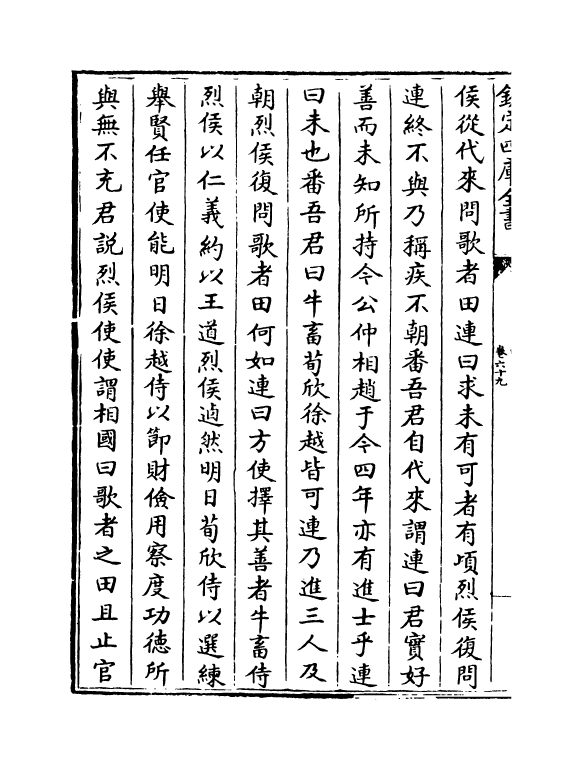 欽定四庫全書
卷六十九
侯從代來問歌者田連曰求未有可者有頃烈侯復問
連終不與乃稱疾不朝番吾君自代來謂連曰君實好
善而未知所持今公仲相趙于今四年亦有進士乎連
曰未也番吾君曰牛畜荀欣徐越皆可連乃進三人及
朝烈侯復問歌者田何如連曰方使擇其善者牛畜侍
烈侯以仁義約以王道烈侯逌然明日荀欣侍以選練
舉賢任官使能明日徐越侍以節財儉用察度功德所
與無不充君說烈侯使使謂相國曰歌者之田且止官